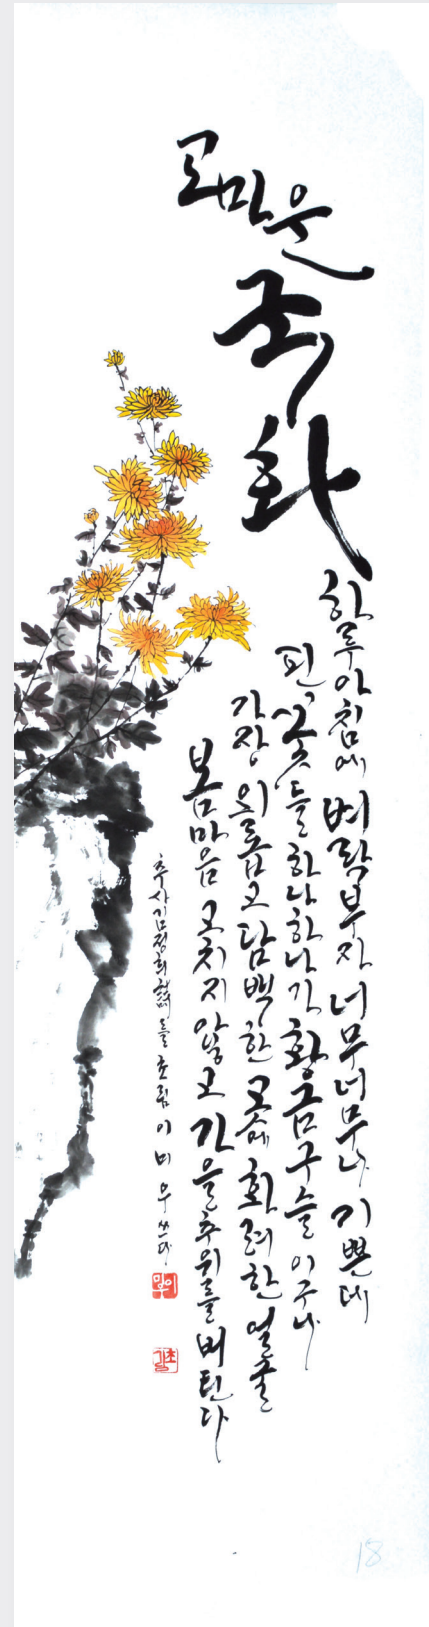 고마운
국화
하루아침에 벼락부자 너무너무나 기쁜데
핀 꽃들 하나하나가 황금구슬이구나
가장 외롭고 담백한 곳에 화려한 얼굴
봄마음 고치지 않고 가을추위를 버틴다
추사김정희 詩를 초림 이미우 쓰다
18